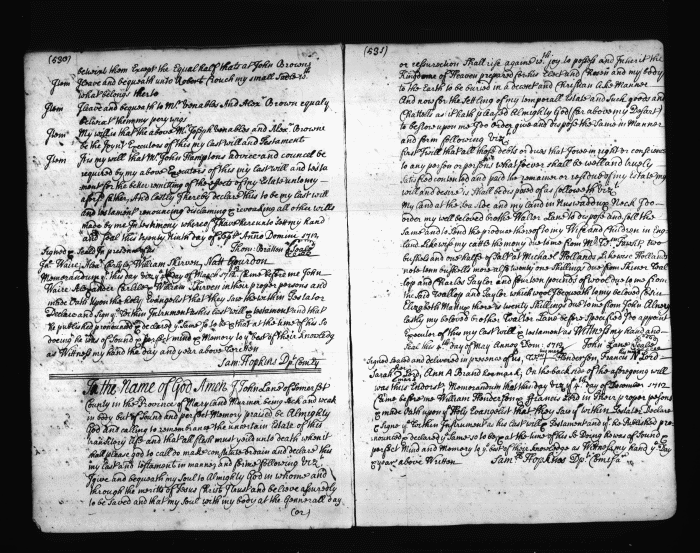 (530)
betwixt them Except the Equal half thats at John Browns
Item I leave and bequeath unto Robert Crouch my small
what belongs thereto
Item I leave and bequeath to Mr. Venables And Alexr. Brown equaly
betwixt them my perywigs
Item My will is that the above Mr. Joseph Venables and Alexr. Browne
be the Joynt Executors of this my last will and Testament
Item Its my will that Mr. John Hamptons advice and councel be
required by my above Executors of this my last will and testa
ment for the better remitting of the Effects of my Estate unto my
afsd. father, And lastly I hereby declare this to be my last will
and testament renouncing disclaming & revoaking all other wills
made by me In testimony whereof I have hereunto set my hand
and seal this twenty Ninth day of Septr. Anno Domini 1712
Signed & Seald In presence of Thom: Bratten Seal
Jas. Waire, Alexr. Carlyle, William Skirven, Matt Gourdon
Memorandum, this day viz: ye day of March 1712 Came before me John
Waire Alexander Carlile & William Skirven in their proper persons and
made Oath Upon the holy Evangelist that they Saw the within Testator
Declare and Signe ye within Instrument as his last will & testament and that
he published pronounced & declared ye Same so to be & that at the time of his So
doeing he was of Sound & perfect mind & Memory to ye best of their Knowledg
as Wittness my hand the day and year above written
Sam: Hopkins Dp: Comty
In the Name of God Amen I John Lane of Somerset
County in the Province of Maryland Mariner being Sick and weak
in body but of Sound and perfect Memory praised be Almighty
God and calling to remembrance the uncertain Estate of this
transitory life and that all flesh must yeild unto death when it
shall please god to call do make constitute ordain and declare this
my last will and testament in manner and forme following viz
I give and bequeath my Soul to Almighty God in whome and
through the merits of Jesus Christ I trust and believe assuredly
to be Saved and that my Soul with my body at the Generall day
(or)
(531)
or resurrection Shall rise againe wth. joy to possess and Inherit the
Kingdome of Heaven prepared for his Elect and Chosen and my body
to the Earth to be buried in a decent and Christian like Manner
And now for the Settling of my temporall Estate and Such goods and
Chattells as it hath pleased Almighty God (far above my Desart)
to bestow upon me I do order, give and dispose the Same in Manner
and form following Viz:
first I will that all those debts or dues that I owe in right or conscience
to any person or persons whatsoever shall be well and truely
satisfied contented and paid the remainer or residue of my Estate my
will and desire is Shall be disposed of as followeth viz:
My land at the Sea Side and my land in Neck I do
order my well beloved brother Walter Lane to dispose and sell the
Same and to Send the produce thereof to my Wife and Children in Eng
land Likewise my cattle money due to me from Mr. two
bushells and one half of Salt at Michael Hollands Likewise Hollands
note tenn bushells more also twenty one Shillings due from Skiner Wal
lop and Charles Taylor and fourteen pounds of wool due to me from
the Sd. Wallop and Taylor which wool I bequeath to my beloved Sister
Elizabeth more twenty Shillings due to me from John
lastly my beloved brother Walter Lane before Specified I do appoint
Executor of this my last will & testament as Wittness my hand and
Seal this 9th. day of May Annoq Dom: 1712 John Lane Seal
Signed Sealed and delivered in presence of us, Wm. Henderson, Francis Lord
Sarah Lord, Ann A Brand her mark, On the backside of the aforegoing will
was thus Endorst. Memorandum that this day viz ye 4th. day of December 1712
Came before me William Henderson & Francis Lord in their proper persons
& made Oath upon ye holy Evangelist that they Saw ye within Testator Declare
& Signe ye within Instrument as his last Will & Testament and yt he Published pro
nounced & declared ye Same so to be & at the time of his So Doing he was of Sound &
perfect Mind and Memory to ye best of their knowledge as Wittness my hand ye Day
& year above Written Saml. Hopkins Dp: Comisa.